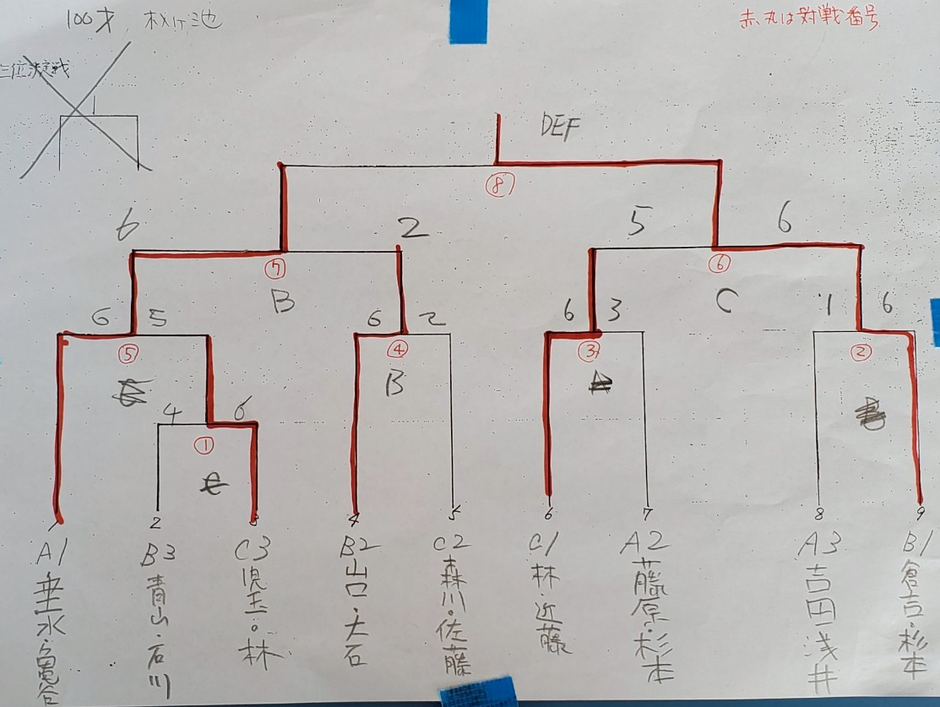 100才
赤丸は対戦番号
三位決定戦
DEF
⑧
6 2
5 6
⑦
⑥
B
C
6 5
6 2
6 3
1 6
⑤
④
③
②
B
4 6
①
1 2 3 4 5 6 7 8 9
A1 垂水・亀谷
B3 青山・石川
C3 児玉・林
B2 山口・大石
C2 森川・佐藤
C1 林・近藤
A2 藤原・杉本
A3 吉田・浅井
B1 倉吉・杉本